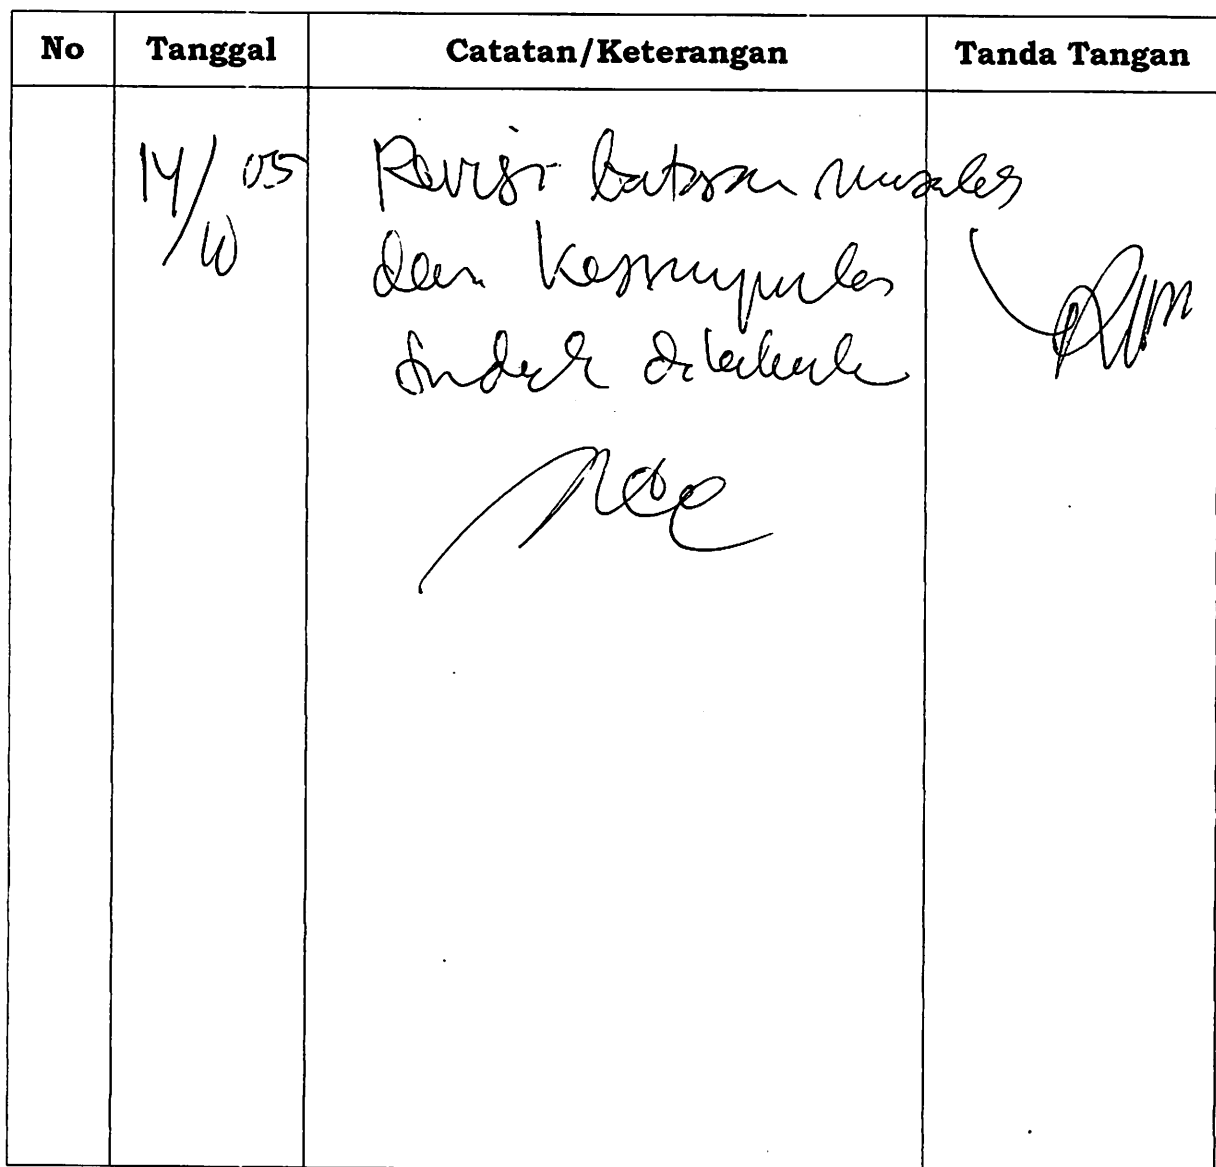 No Tanggal Catatan/Keterangan Tanda Tangan
14/10 05 Revisi batasan masalah
dan Kesimpulan
sudah dilakukan